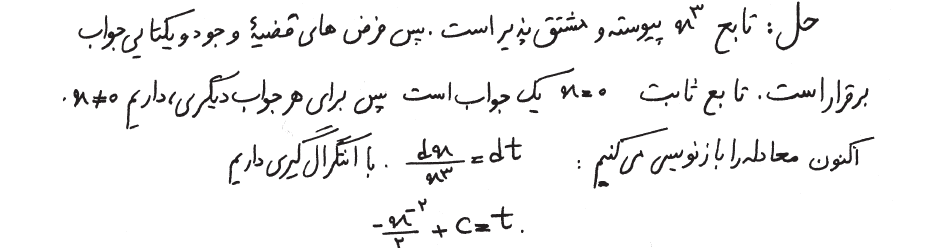 حل: تابع x^۳ پیوسته و مشتق پذیر است. پس فرض های قضیهٔ وجود و یکتایی جواب
برقرار است. تابع ثابت x=۰ یک جواب است پس برای هر جواب دیگری، داریم x≠۰.
اکنون معادله را بازنویسی می کنیم: dx/x^۳ = dt. با انتگرال گیری داریم
-x^-۲/۲ + c = t.